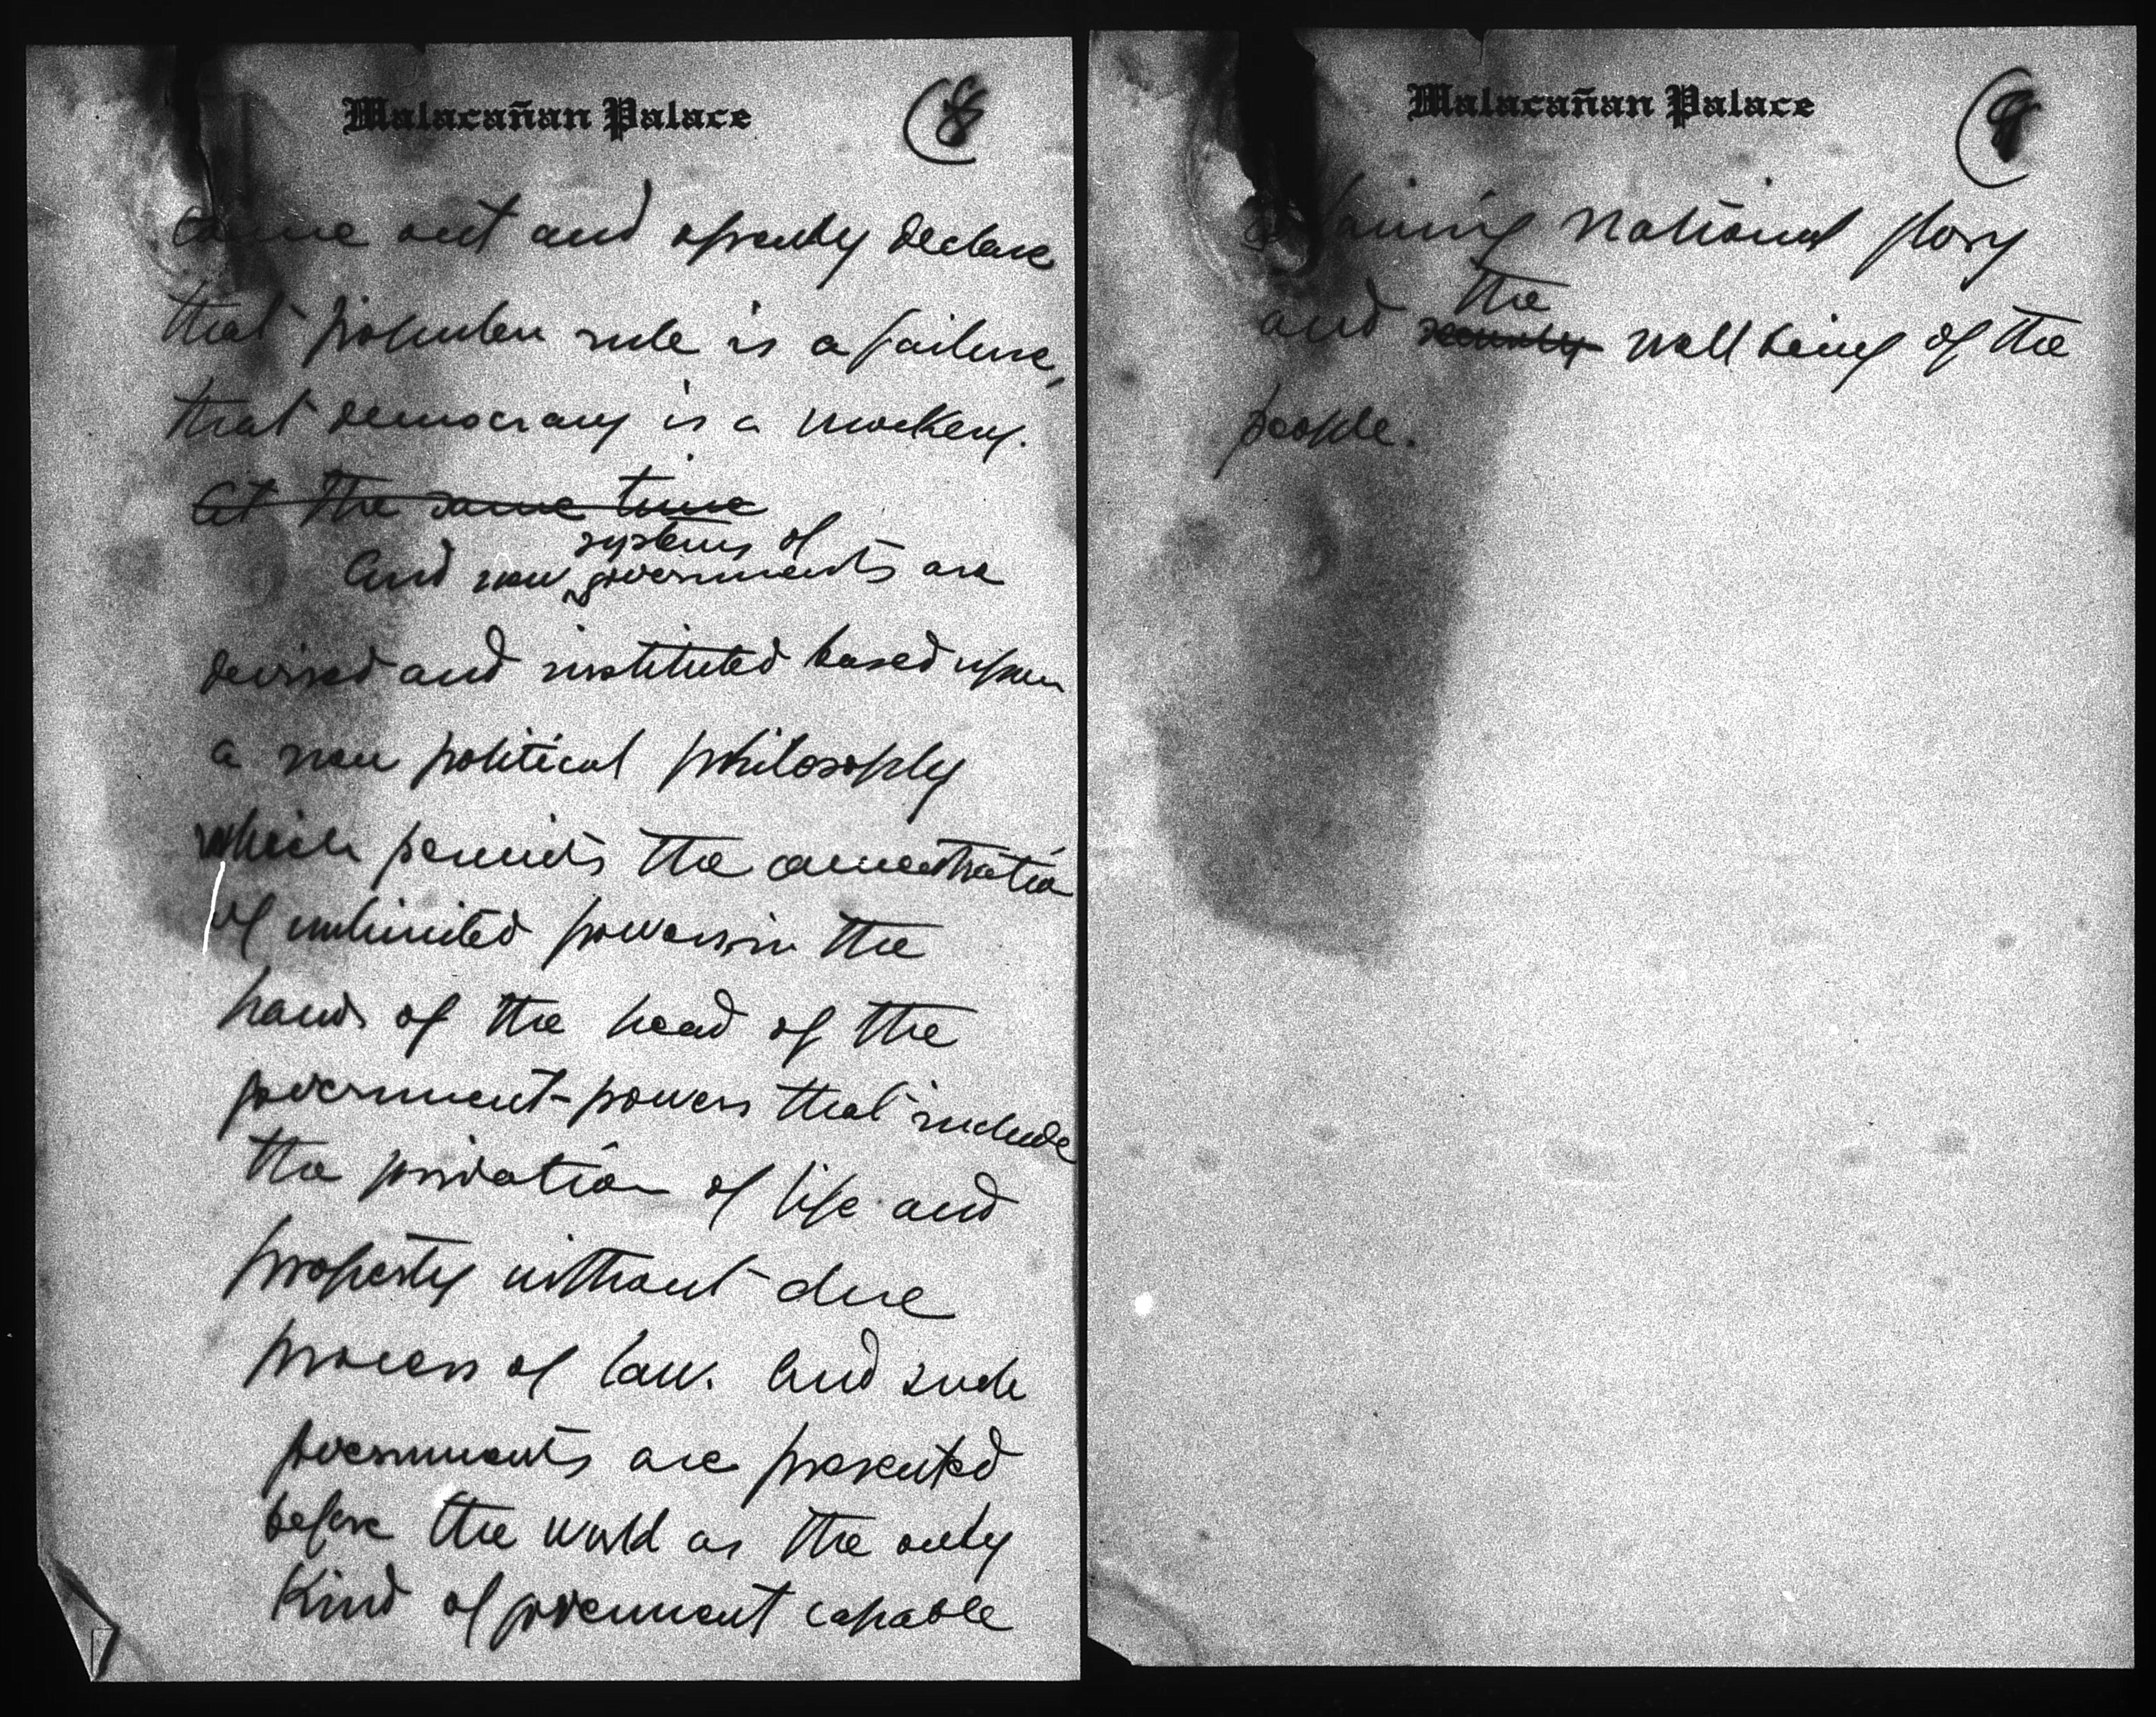 Malacañan Palace
8
come out and openly declare
that popular rule is a failure,
that democracy is a mockery.
At the same time
systems of
And new governments are
devised and instituted based upon
a new political philosophy
which permits the concentration
of unlimited powers in the
hands of the head of the
government - powers that include
the privation of life and
property without due
process of law. And such
governments are presented
before the world as the only
kind of government capable
Malacañan Palace
9
national glory
the
and well being of the
people.